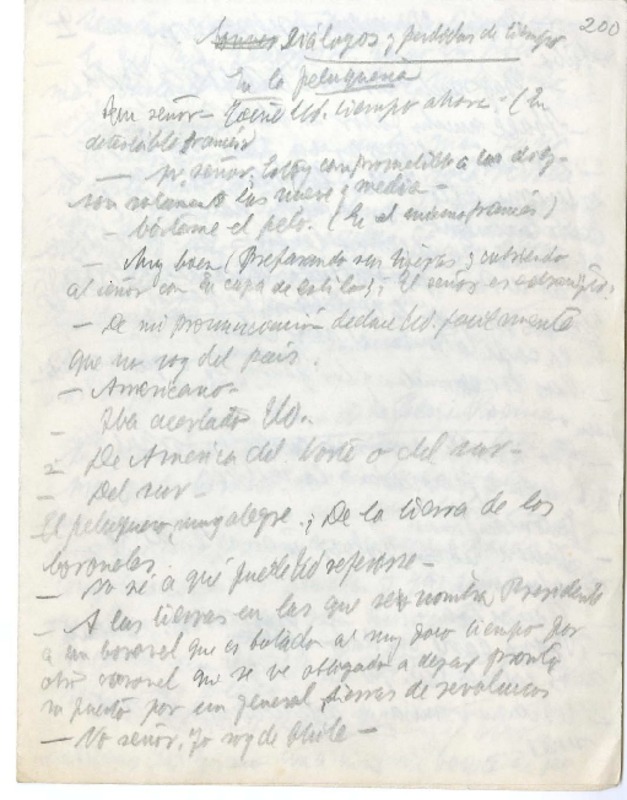 200
Diálogos y perdidas de tiempo
En la peluquería
señor - Tiene Ud. tiempo ahora. - (En
detestable francés)
— señor. Estoy comprometido a
solamente las nueve y media -
- el pelo. (En el mismo francés)
- Muy buen (Preparando sus tijeras y cubriendo
al señor con la capa de estilo); El señor es extranjero?
- De mi pronunciación deduce Ud. facilmente
que no soy del país.
- Americano -
- Ha acertado Ud.
- De America del Norte o del sur -
- Del sur -
El peluquero, muy alegre. ¡ De la tierra de los
coroneles.
- No sé a qué puede Ud referirse -
- A las tierras en las que se nombra Presidente
a un coronel que es botado al muy poco tiempo por
otro coronel que se ve obligado a dejar pronto
su puesto por un general, tierras de revolucion
- No señor. Yo soy de Chile -